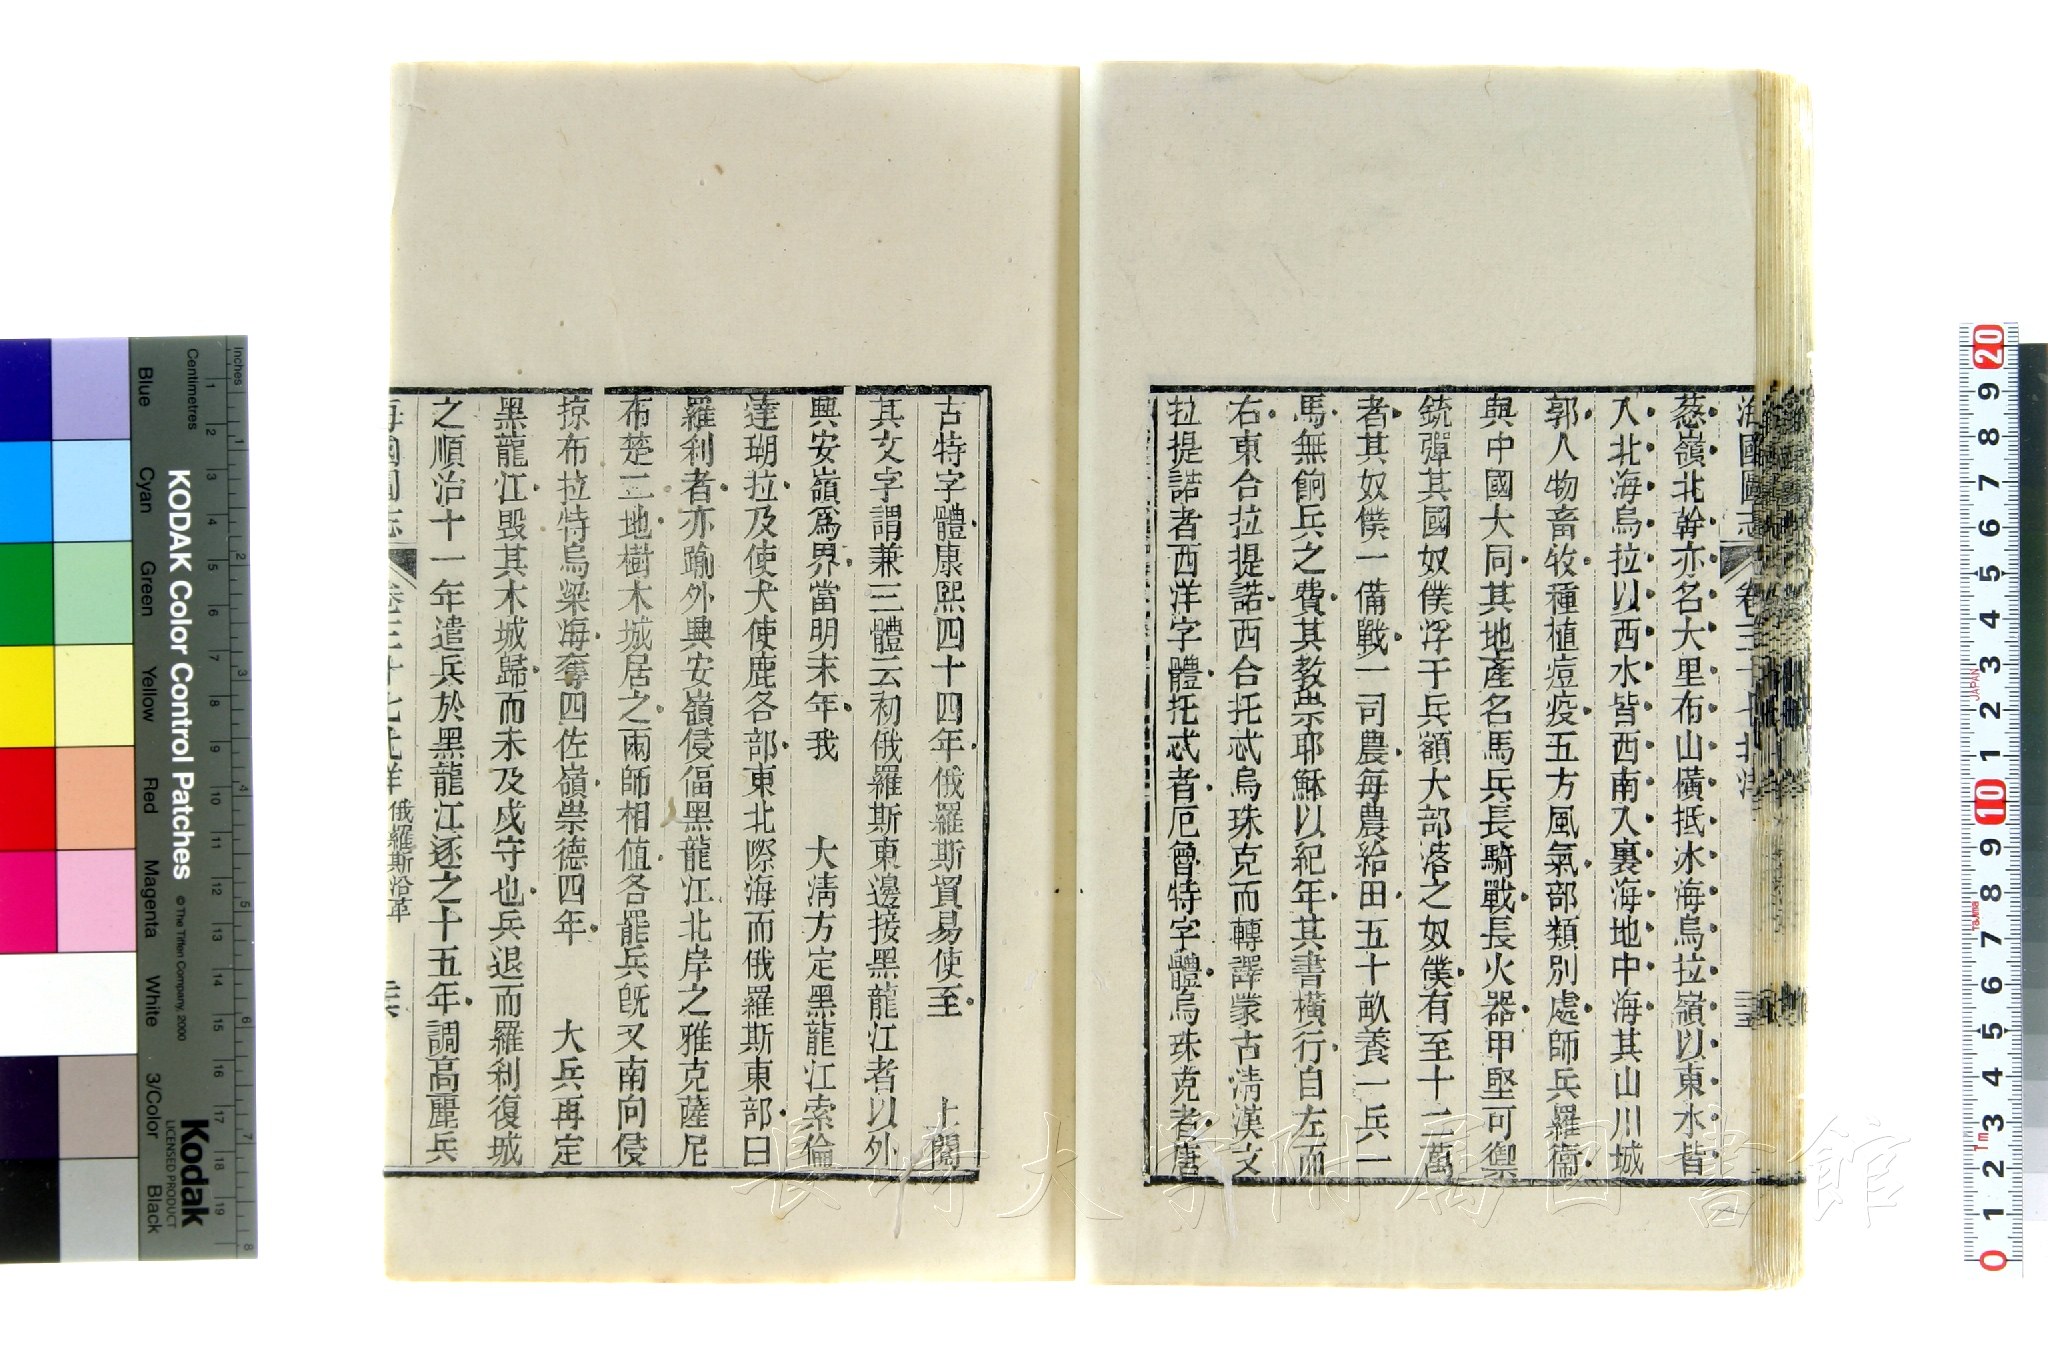 海國圖志 卷三十七 北洋 三五
葱嶺北幹亦名大里布山橫抵冰海烏拉嶺以東水皆
入北海烏拉以西水皆西南入裏海地中海其山川城
郭人物畜牧種植痘疫五方風氣部類別處師兵羅衞
與中國大同其地產名馬兵長騎戰長火器甲堅可禦
銃彈其國奴僕浮于兵額大部落之奴僕有至十二萬
者其奴僕一備戰一司農每農給田五十畝養一兵一
馬無餉兵之費其教崇耶穌以紀年其書橫行自左而
右東合拉提諾西合托忒烏珠克而轉譯蒙古淸漢文
拉提諾者西洋字體托忒者厄魯特字體烏珠克者唐
古特字體康熙四十四年俄羅斯貿易使至 上閱
其文字謂兼三體云初俄羅斯東邊接黑龍江者以外
興安嶺爲界當明末年我 大淸方定黑龍江索倫
達瑚拉及使犬使鹿各部東北際海而俄羅斯東部曰
羅利者亦踰外興安嶺侵偪黑龍江北岸之雅克薩尼
布楚二地樹木城居之兩師相值各罷兵旣又南向侵
掠布拉特烏梁海奪四佐嶺崇德四年 大兵再定
黑龍江毀其木城歸而未及戍守也兵退而羅利復城
之順治十一年遣兵於黑龍江逐之十五年調高麗兵
海國圖志 卷三十七 北洋 俄羅斯沿革 三六
KODAK Color Control Patches
© The Tiffen Company, 2000
Kodak
LICENSED PRODUCT
Inches
Centimetres
Blue Cyan Green Yellow Red Magenta White 3/Color Black
1 2 3 4 5 6 7 8 9 10 11 12 13 14 15 16 17 18 19
1 2 3 4 5 6 7 8
20 9 8 7 6 5 4 3 2 1 10 9 8 7 6 5 4 3 2 1 0
JAPAN
長崎大学附属図書館